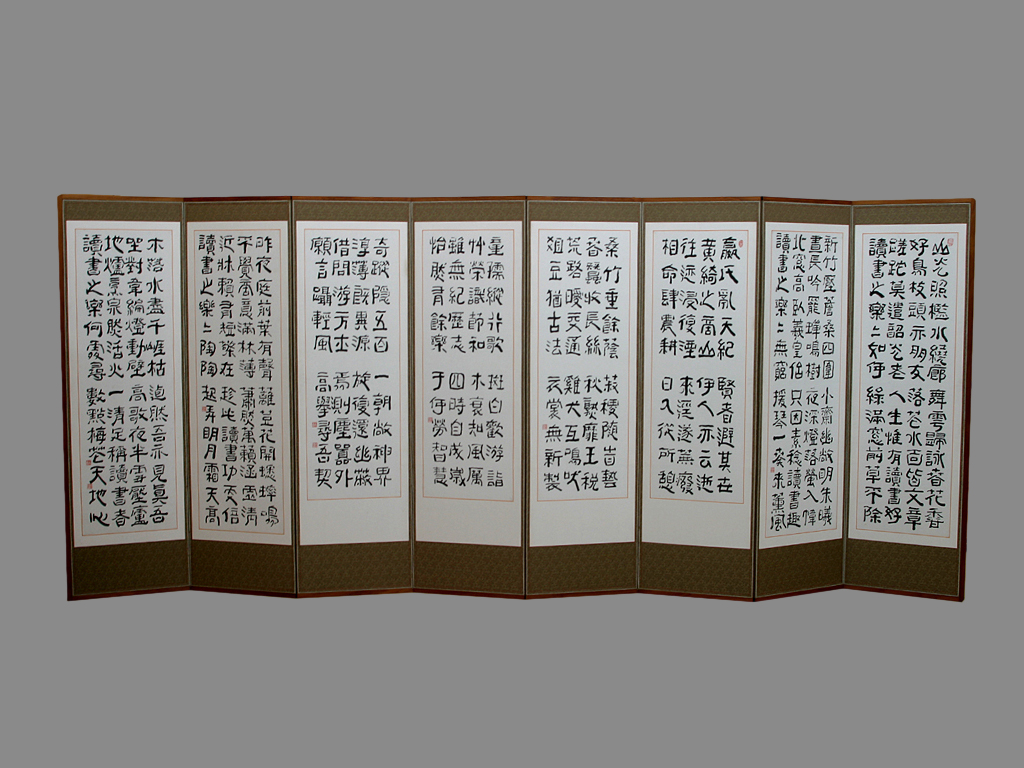 山光照檻水繞廊 舞雩歸詠春花香
好鳥枝頭亦朋友 落花水面皆文章
蹉跎莫遣韶光老 人生惟有讀書好
讀書之樂〻如何 綠滿窓前草不除
新竹壓簷桑四圍 小齋幽敞明朱曦
晝長吟罷蟬鳴樹 夜深燈落螢入幃
北窓高臥羲皇侶 只因素稔讀書趣
讀書之樂〻無窮 援琴一奏來薰風
嬴氏亂天紀 賢者避其世
黃綺之商山 伊人亦云逝
往迹浸復湮 來逕遂蕪廢
相命肆農耕 日入從所憩
桑竹垂餘蔭 菽稷隨時藝
春蠶收長絲 秋熟靡王稅
荒路曖交通 雞犬互鳴吠
俎豆猶古法 衣裳無新製
童孺縱行歌 斑白歡游詣
艸榮識節和 木衰知風厲
雖無紀歷志 四時自成歲
怡然有餘樂 于何勞智慧
奇蹤隱五百 一朝敞神界
淳薄旣異源 旋復還幽蔽
借問游方士 焉測塵囂外
願言躡輕風 高擧尋吾契
昨夜庭前葉有聲 籬豆花開蟋蟀鳴
不覺商意滿林薄 蕭然萬籟涵虛清
近牀賴有短檠在 珍此讀書功更倍
讀書之樂〻陶陶 起弄明月霜天高
木落水盡千崖枯 逈然吾亦見眞吾
坐對韋編燈動壁 高歌夜半雪壓廬
地爐烹泉然活火 一清足稱讀書者
讀書之樂何處尋 數點梅花天地心